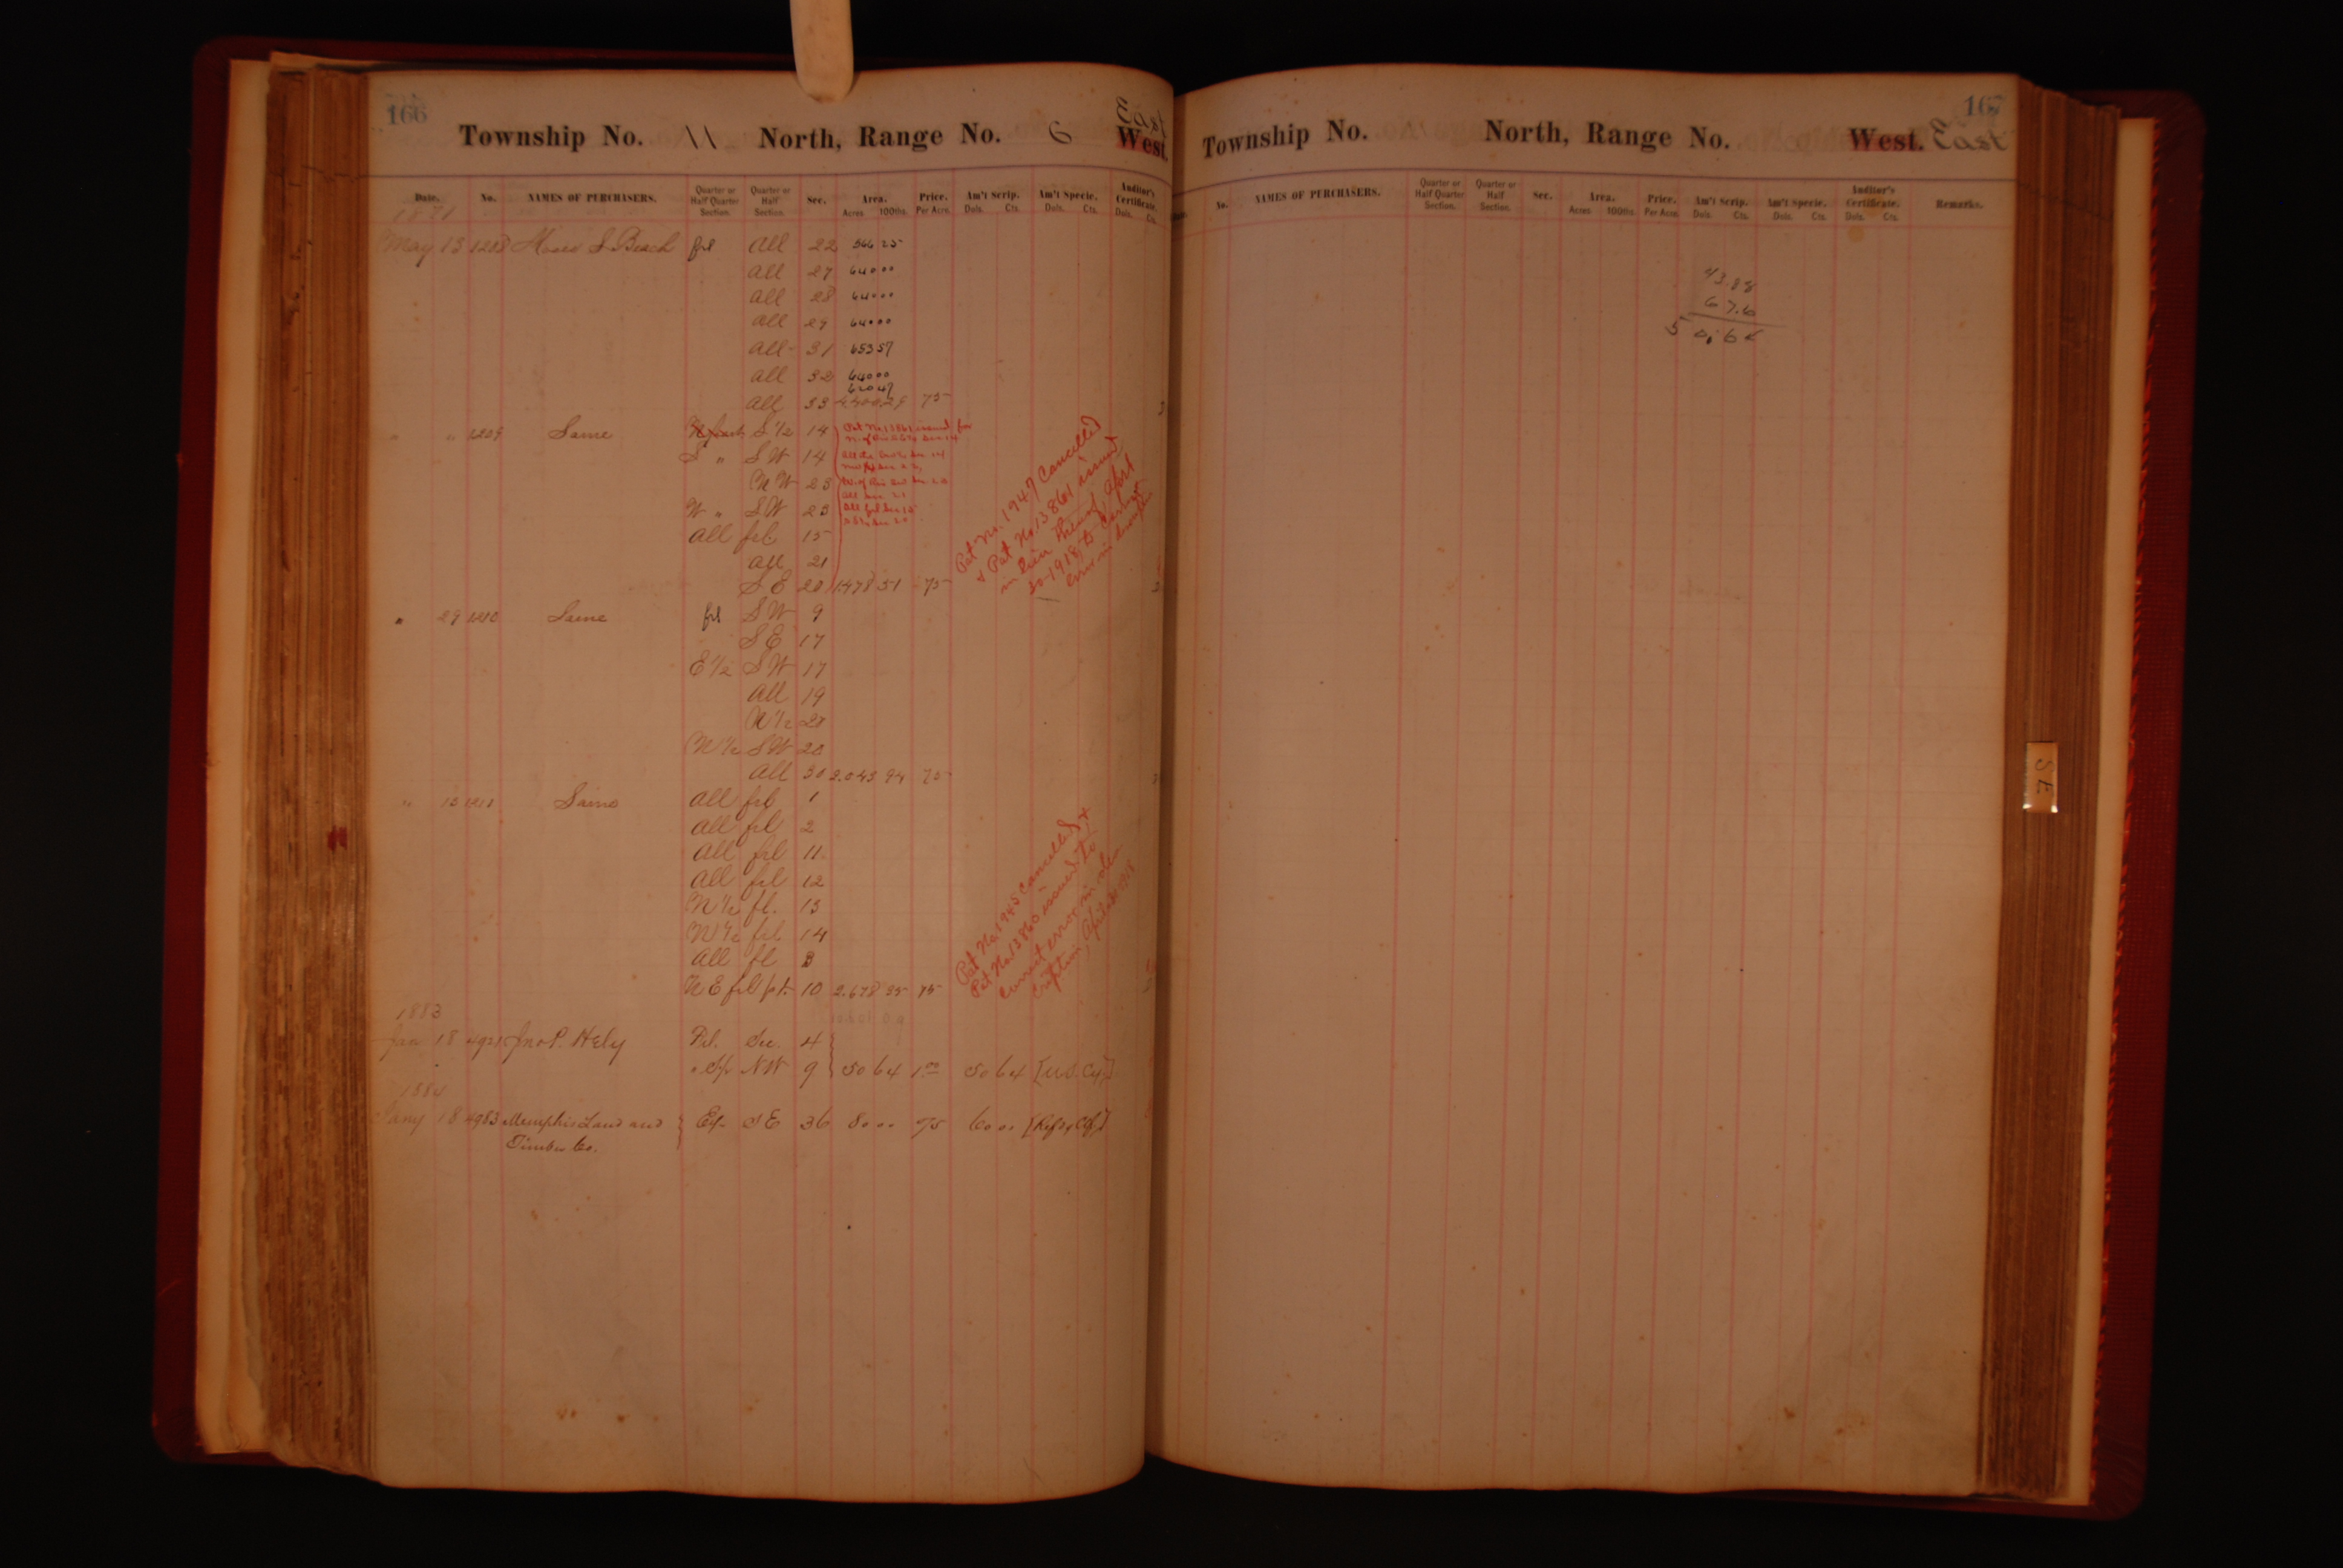 166
Township No. 11 North, Range No. 6 East
West.
Date. No. NAMES OF PURCHASERS. Quarter or Half Quarter Section. Quarter or Half Section. Sec. Area. Acres 100ths. Price. Per Acre. Am't Scrip. Dols. Cts. Am't Specie. Dols. Cts. Auditor's Certificate. Dols. Cts.
1871
May 13 1208 Moses S. Beach frl All 22 566 25
All 27 640 00
All 28 640 00
All 29 640 00
All 31 653 57
All 32 640 00
620 47
All 33 4400.29 75
" " 1209 Same S 1/2 14
S " S W 14
N W 23
W " S W 23
All frl. 15
All 21
S E 20 1478 51 75
Pat No. 13861 issued for
All Sec. 21
Pat No. 1947 Cancelled
& Pat No. 13861 issued
in lieu thereof Apr
30-1918, to correct
error in
" 29 1210 Same frl S W 9
S E 17
E 1/2 S W 17
All 19
N 1/2 20
N 1/2 S W 20
All 30 2.043 94 75
" 13 1211 Same All frl 1
All frl 2
All frl 11
All frl 12
N 1/2 fl. 13
N 1/2 frl 14
All fl 3
N E frl pt. 10 2.678 35 75
Pat No. 1945 Cancelled &
Pat No. 13860 issued to
correct error in des-
cription, April 1918
1883
Jan 18 4921 Jno P. Hely Frl. Sec. 4
" NW 9 50 64 1.00 50 64 [U.S. Cy.]
1884
Jany 18 4983 Memphis Land and E 1/2 S E 36 80 00 75 60 00
Timber Co.
167
Township No. North, Range No. West. East
Date. No. NAMES OF PURCHASERS. Quarter or Half Quarter Section. Quarter or Half Section. Sec. Area. Acres 100ths. Price. Per Acre. Am't Scrip. Dols. Cts. Am't Specie. Dols. Cts. Auditor's Certificate. Dols. Cts. Remarks.
43.88
6 7.6
5 0.6 4
S E